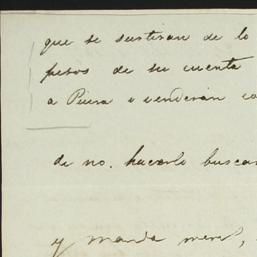 que se surtiran de lo
pesos de su cuenta
a Piura o venderan co
de no. hacerlo buscar
y manda